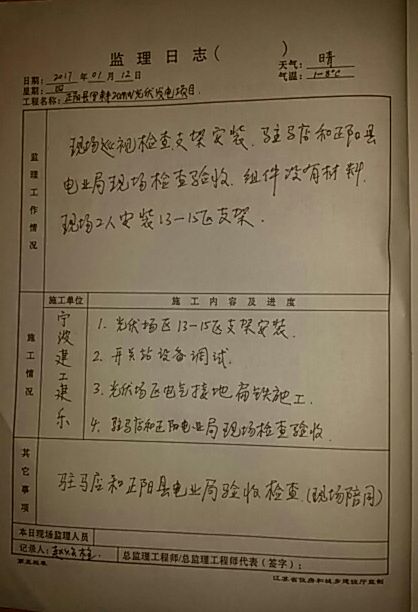 监理日志( )
日期: 2017 年 01 月 12 日 天气: 晴
星期: 四 气温: 1-8℃
工程名称: 正阳县 20MW光伏发电项目.
监理工作情况
现场巡视检查支架安装. 驻马店和正阳县
电业局现场检查验收. 组件没有材料.
现场2人安装13-15区支架.
施工单位 施工内容及进度
施工情况
宁波建工建乐
1. 光伏场区13-15区支架安装.
2. 开关站设备调试.
3. 光伏场区电气接地扁铁施工.
4. 驻马店和正阳电业局现场检查验收.
其它事项
驻马店和正阳县电业局验收检查.(现场陪同)
本日现场监理人员
记录人: 总监理工程师/总监理工程师代表(签字):
江苏省住房和城乡建设厅监制